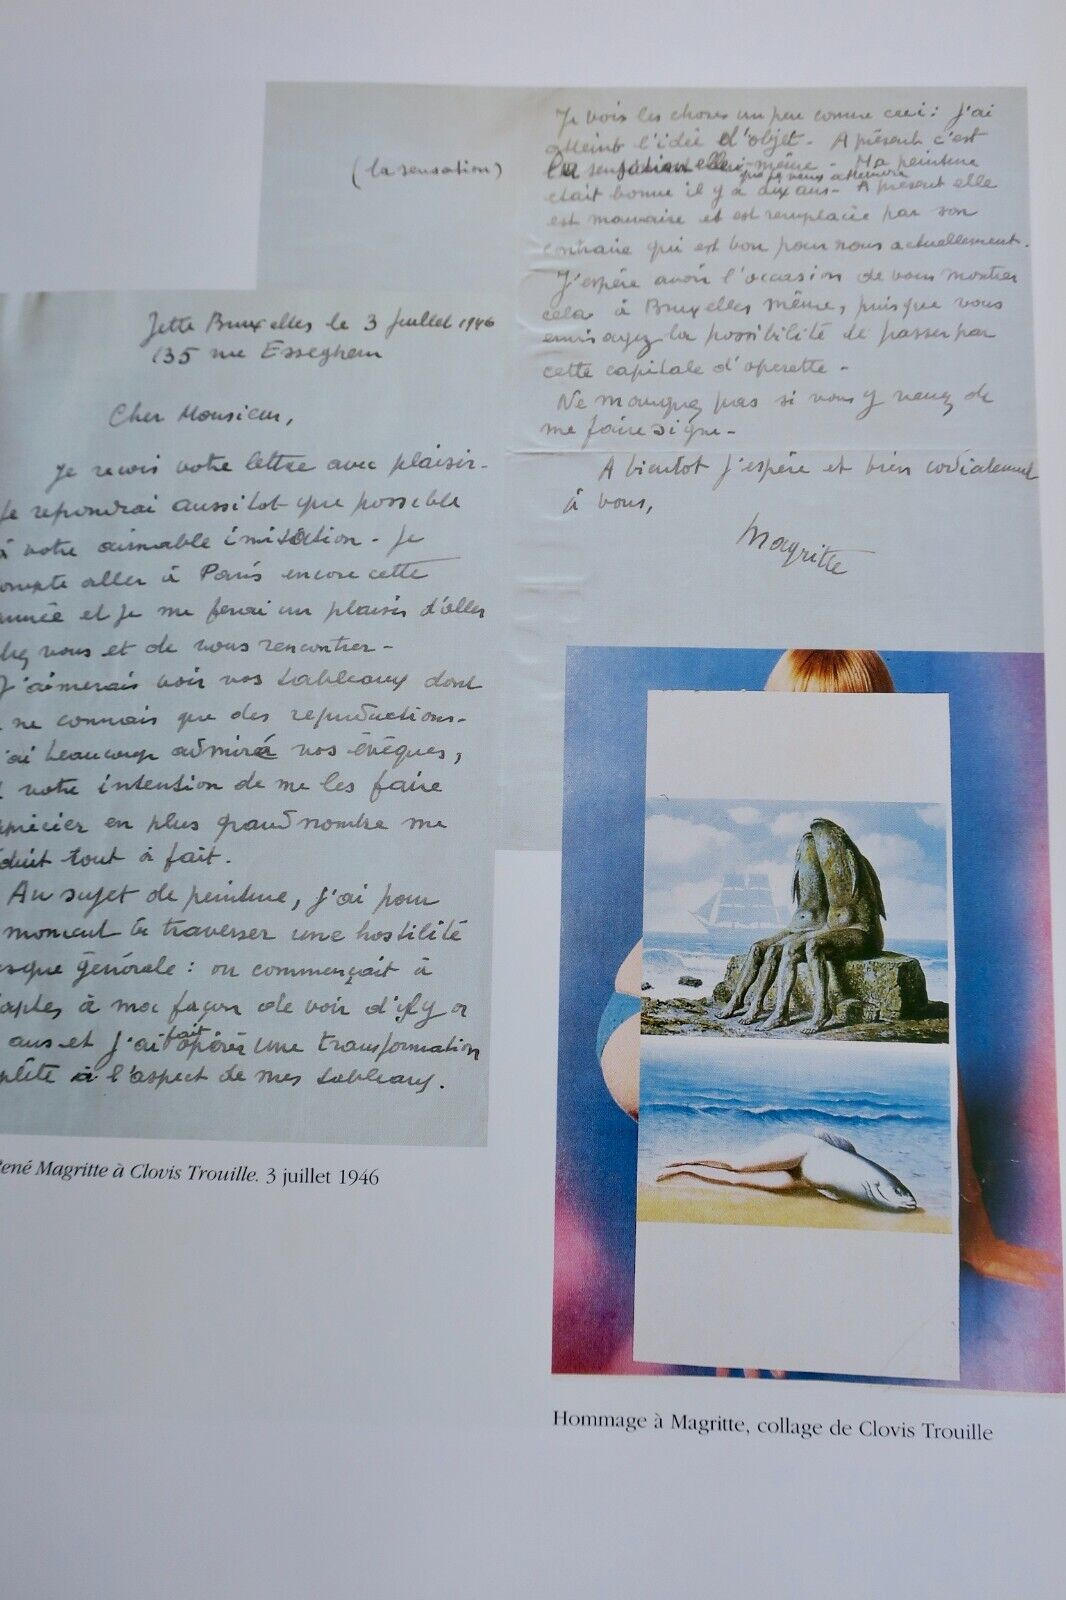 Jette Bruxelles le 3 juillet 1946
135 rue Esseghem
Cher Monsieur,
Je reçois votre lettre avec plaisir.
Je repondrai aussitot que possible
à votre aimable invitation. Je
compte aller à Paris encore cette
année et je me ferai un plaisir d'aller
chez vous et de vous rencontrer.
J'aimerais voir vos tableaux dont
ne connais que des reproductions.
J'ai beaucoup admiré vos évêques,
votre intention de me les faire
apprécier en plus grand nombre me
séduit tout à fait.
Au sujet de peinture, j'ai pour
moment à traverser une hostilité
presque générale : on commençait à
à ma façon de voir d'il y a
ans et j'ai fait opérer une transformation
complète à l'aspect de mes tableaux.
(la sensation)
Je vois les choses un peu comme ceci : j'ai
atteint l'idée d'objet. A présent c'est
la sensation elle-même que je veux atteindre. Ma peinture
était bonne il y a dix ans. A présent elle
est mauvaise et est remplacée par son
contraire qui est bon pour nous actuellement.
J'espère avoir l'occasion de vous montrer
cela à Bruxelles même, puisque vous
envisagez la possibilité de passer par
cette capitale d'operette.
Ne manquez pas si vous y venez de
me faire signe.
A bientot j'espère et bien cordialement
à vous,
Magritte
René Magritte à Clovis Trouille. 3 juillet 1946
Hommage à Magritte, collage de Clovis Trouille